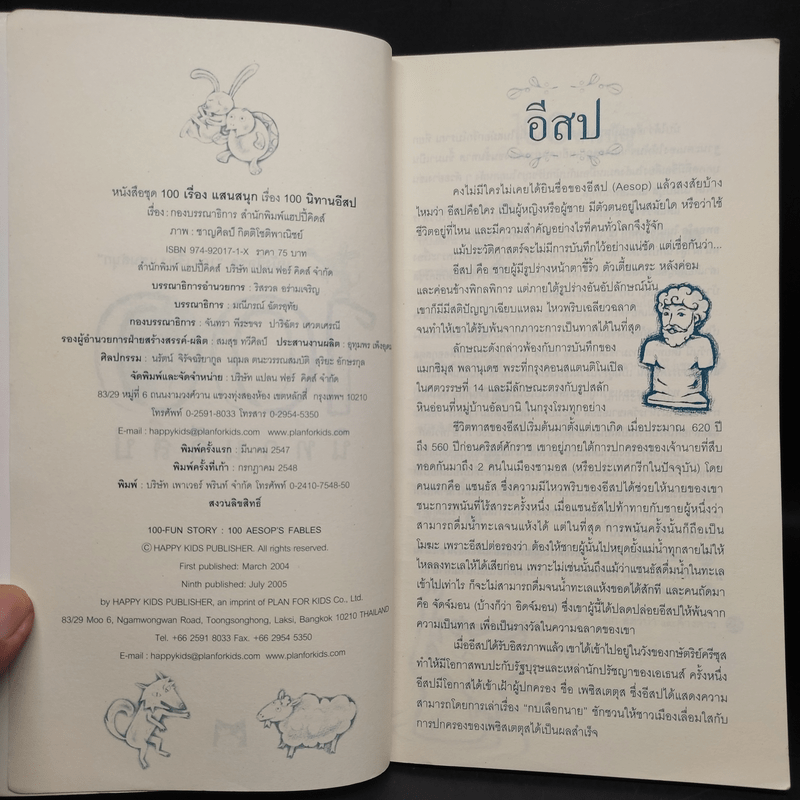 หนังสือชุด 100 เรื่อง แสนสนุก เรื่อง 100 นิทานอีสป
เรื่อง : กองบรรณาธิการ สำนักพิมพ์แฮปปี้คิดส์
ภาพ : ชาญศิลป์ กิตติโชติพาณิชย์
ISBN 974-92017-1-X ราคา 75 บาท
สำนักพิมพ์ แฮปปี้คิดส์ บริษัท แปลน ฟอร์ คิดส์ จำกัด
บรรณาธิการอำนวยการ : ริสรวล อร่ามเจริญ
บรรณาธิการ : มณีภรณ์ ฉัตรอุทัย
กองบรรณาธิการ : จันทรา พีระขจร ปาริฉัตร เศวตเศรณี
รองผู้อำนวยการฝ่ายสร้างสรรค์-ผลิต : สมสุข ทวีศิลป์ ประสานงานผลิต : อุทุมพร เพ็งอุดม
ศิลปกรรม : นรัตน์ จิรัจฉริยากูล นฤมล ตนะวรรณสมบัติ สุริยะ อักษรกุล
จัดพิมพ์และจัดจำหน่าย : บริษัท แปลน ฟอร์ คิดส์ จำกัด
83/29 หมู่ที่ 6 ถนนงามวงศ์วาน แขวงทุ่งสองห้อง เขตหลักสี่ กรุงเทพฯ 10210
โทรศัพท์ 0-2591-8033 โทรสาร 0-2954-5350
E-mail : happykids@planforkids.com www.planforkids.com
พิมพ์ครั้งแรก : มีนาคม 2547
พิมพ์ครั้งที่เก้า : กรกฎาคม 2548
พิมพ์ : บริษัท เพาเวอร์ พรินท์ จำกัด โทรศัพท์ 0-2410-7548-50
สงวนลิขสิทธิ์
100-FUN STORY : 100 AESOP'S FABLES
© HAPPY KIDS PUBLISHER. All rights reserved.
First published: March 2004
Ninth published: July 2005
by HAPPY KIDS PUBLISHER, an imprint of PLAN FOR KIDS Co., Ltd.
83/29 Moo 6, Ngamwongwan Road, Toongsonghong, Laksi, Bangkok 10210 THAILAND
Tel. +66 2591 8033 Fax. +66 2954 5350
E-mail : happykids@planforkids.com www.planforkids.com
อีสป
คงไม่มีใครไม่เคยได้ยินชื่อของอีสป (Aesop) แล้วสงสัยบ้าง
ไหมว่า อีสปคือใคร เป็นผู้หญิงหรือผู้ชาย มีตัวตนอยู่ในสมัยใด หรือว่าใช้
ชีวิตอยู่ที่ไหน และมีความสำคัญอย่างไรที่คนทั่วโลกจึงรู้จัก
แม้ประวัติศาสตร์จะไม่มีการบันทึกไว้อย่างแน่ชัด แต่เชื่อกันว่า...
อีสป คือ ชายผู้มีรูปร่างหน้าตาขี้ริ้ว ตัวเตี้ยแคระ หลังค่อม
และค่อนข้างพิกลพิการ แต่ภายใต้รูปร่างอันอัปลักษณ์นั้น
เขาก็มีมีสติปัญญาเฉียบแหลม ไหวพริบเฉลียวฉลาด
จนทำให้เขาได้รับพ้นจากภาวะการเป็นทาสได้ในที่สุด
ลักษณะดังกล่าวพ้องกับการบันทึกของ
แมกซิมุส พลานุเดซ พระที่กรุงคอนสแตนติโนเปิล
ในศตวรรษที่ 14 และมีลักษณะตรงกับรูปสลัก
หินอ่อนที่หมู่บ้านอัลบานิ ในกรุงโรมทุกอย่าง
ชีวิตทาสของอีสปเริ่มต้นมาตั้งแต่เขาเกิด เมื่อประมาณ 620 ปี
ถึง 560 ปีก่อนคริสต์ศักราช เขาอยู่ภายใต้การปกครองของเจ้านายที่สืบ
ทอดกันมาถึง 2 คนในเมืองซามอส (หรือประเทศกรีกในปัจจุบัน) โดย
คนแรกคือ แซนธัส ซึ่งความมีไหวพริบของอีสปได้ช่วยให้นายของเขา
ชนะการพนันที่ไร้สาระครั้งหนึ่ง เมื่อแซนธัสไปท้าทายกับชายผู้หนึ่งว่า
สามารถดื่มน้ำทะเลจนแห้งได้ แต่ในที่สุด การพนันครั้งนั้นก็ถือเป็น
โมฆะ เพราะอีสปต่อรองว่า ต้องให้ชายผู้นั้นไปหยุดยั้งแม่น้ำทุกสายไม่ให้
ไหลลงทะเลให้ได้เสียก่อน เพราะไม่เช่นนั้นถึงแม้ว่าแซนธัสดื่มน้ำในทะเล
เข้าไปเท่าไร ก็จะไม่สามารถดื่มจนน้ำทะเลแห้งขอดได้สักที และคนถัดมา
คือ จัดจ์มอน (บ้างก็ว่า อิดจ์มอน) ซึ่งเขาผู้นี้ได้ปลดปล่อยอีสปให้พ้นจาก
ความเป็นทาส เพื่อเป็นรางวัลในความฉลาดของเขา
เมื่ออีสปได้รับอิสรภาพแล้ว เขาได้เข้าไปอยู่ในวังของกษัตริย์ครีซุส
ทำให้มีโอกาสพบปะกับรัฐบุรุษและเหล่านักปรัชญาของเอเธนส์ ครั้งหนึ่ง
อีสปมีโอกาสได้เข้าเฝ้าผู้ปกครอง ชื่อ เพซิสเตตุส ซึ่งอีสปได้แสดงความ
สามารถโดยการเล่าเรื่อง “กบเลือกนาย” ชักชวนให้ชาวเมืองเลื่อมใสกับ
การปกครองของเพซิสเตตุสได้เป็นผลสำเร็จ